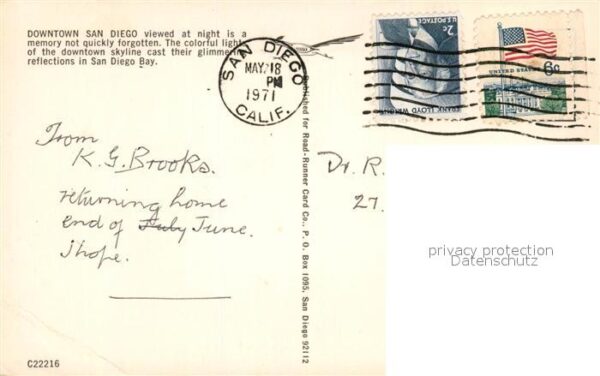 DOWNTOWN SAN DIEGO viewed at night is a
memory not quickly forgotten. The colorful lights
of the downtown skyline cast their glimmering
reflections in San Diego Bay.
SAN DIEGO
MAY 18
PM
1971
CALIF.
2c
U.S. POSTAGE
FRANK LLOYD WRIGHT
6c
UNITED STATES POSTAGE
From
K. G. Brooks.
returning home
end of July June.
I hope.
Dr. R.
27.
Published for Road-Runner Card Co., P. O. Box 1095, San Diego 92112
privacy protection
Datenschutz
C22216